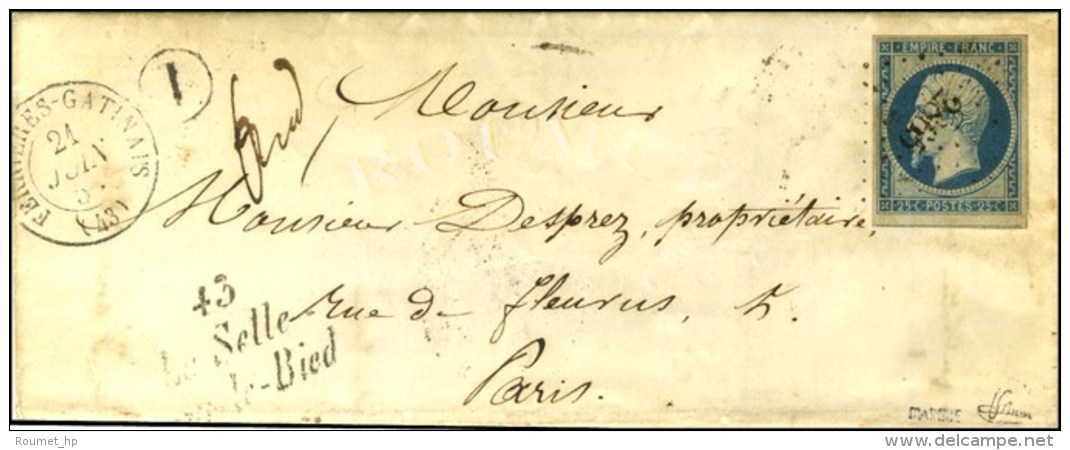 FERRIERES-GATINAIS
21
JUIN
(43)
1
EMPIRE FRANC
25 C POSTES 25 C
Monsieur
Monsieur Desprez, propriétaire,
rue de fleurus, 5.
Paris.
43
La Selle
-le-Bied
Roumet_hp
www.delcampe.net